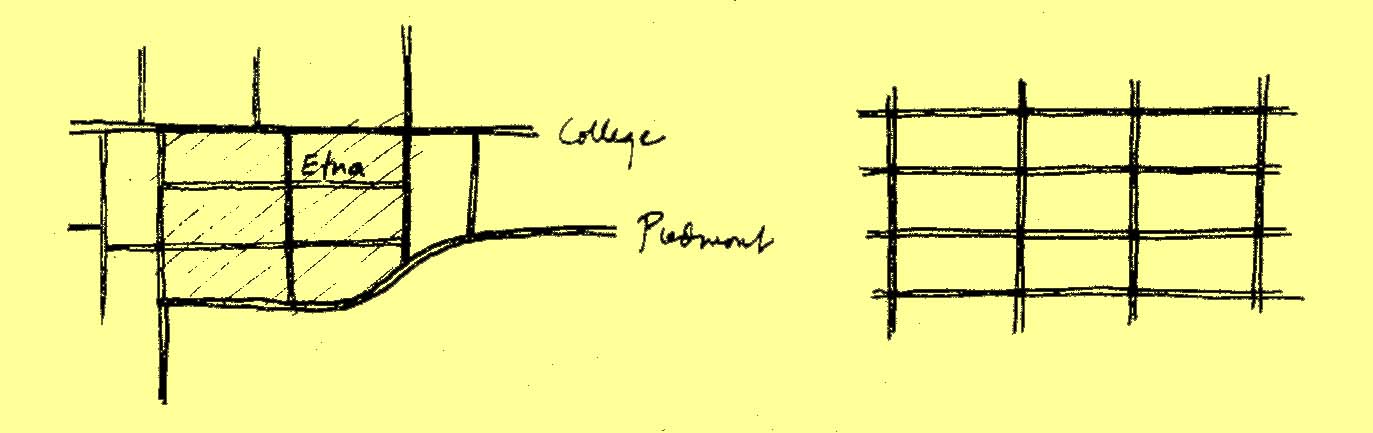 College
Etna
Piedmont